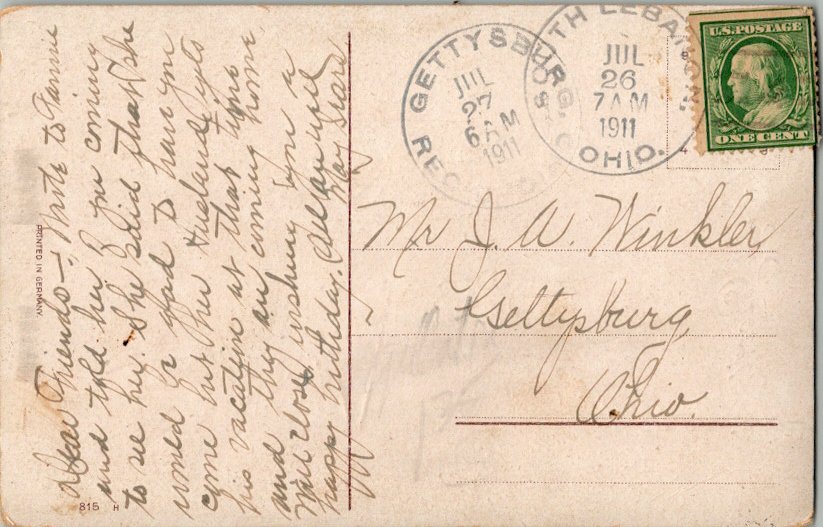 Dear Friends— Wrote to Fannie
and told her of you coming
to see her. She said that she
would be glad to have you
come but her husband gets
his vacation at that time
and they are coming home
Will close wishing you a
happy birthday. All are well
May Sears
PRINTED IN GERMANY.
815 H
GETTYSBURG, OHIO.
JUL
27
6 AM
1911
REC'D
LEBANON
OHIO.
JUL
26
7 AM
1911
U.S. POSTAGE
ONE CENT
Mr J. A. Winkler
Gettysburg
Ohio.